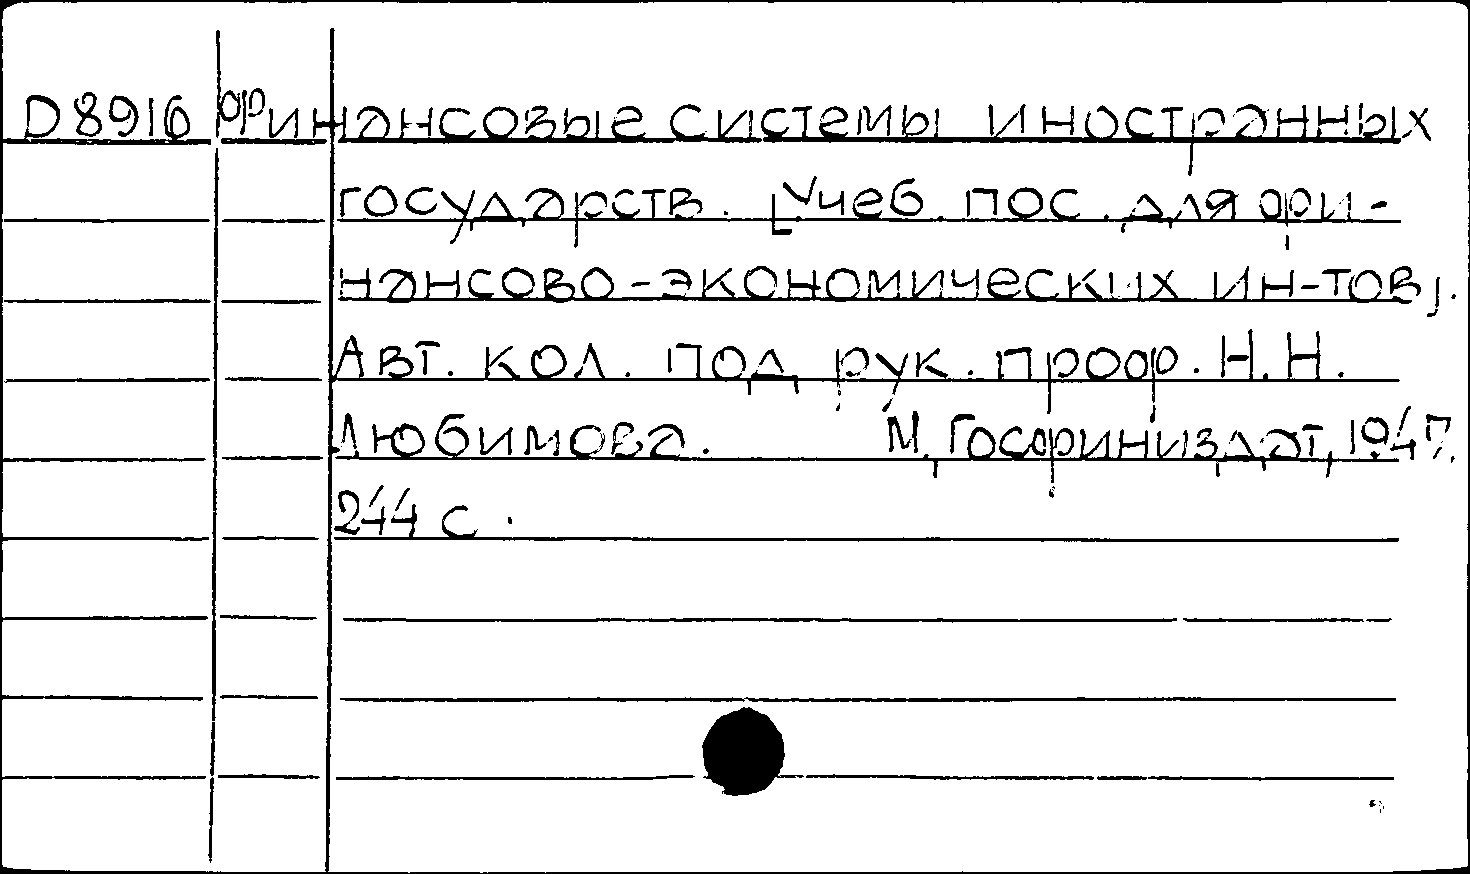 D8916 Финансовые системы иностранных
государств. [Учеб. пос. для фи-
нансово-экономических ин-тов].
Авт. кол. под рук. проф. Н.Н.
Любимова. М., Госфиниздат, 1947.
244 с.